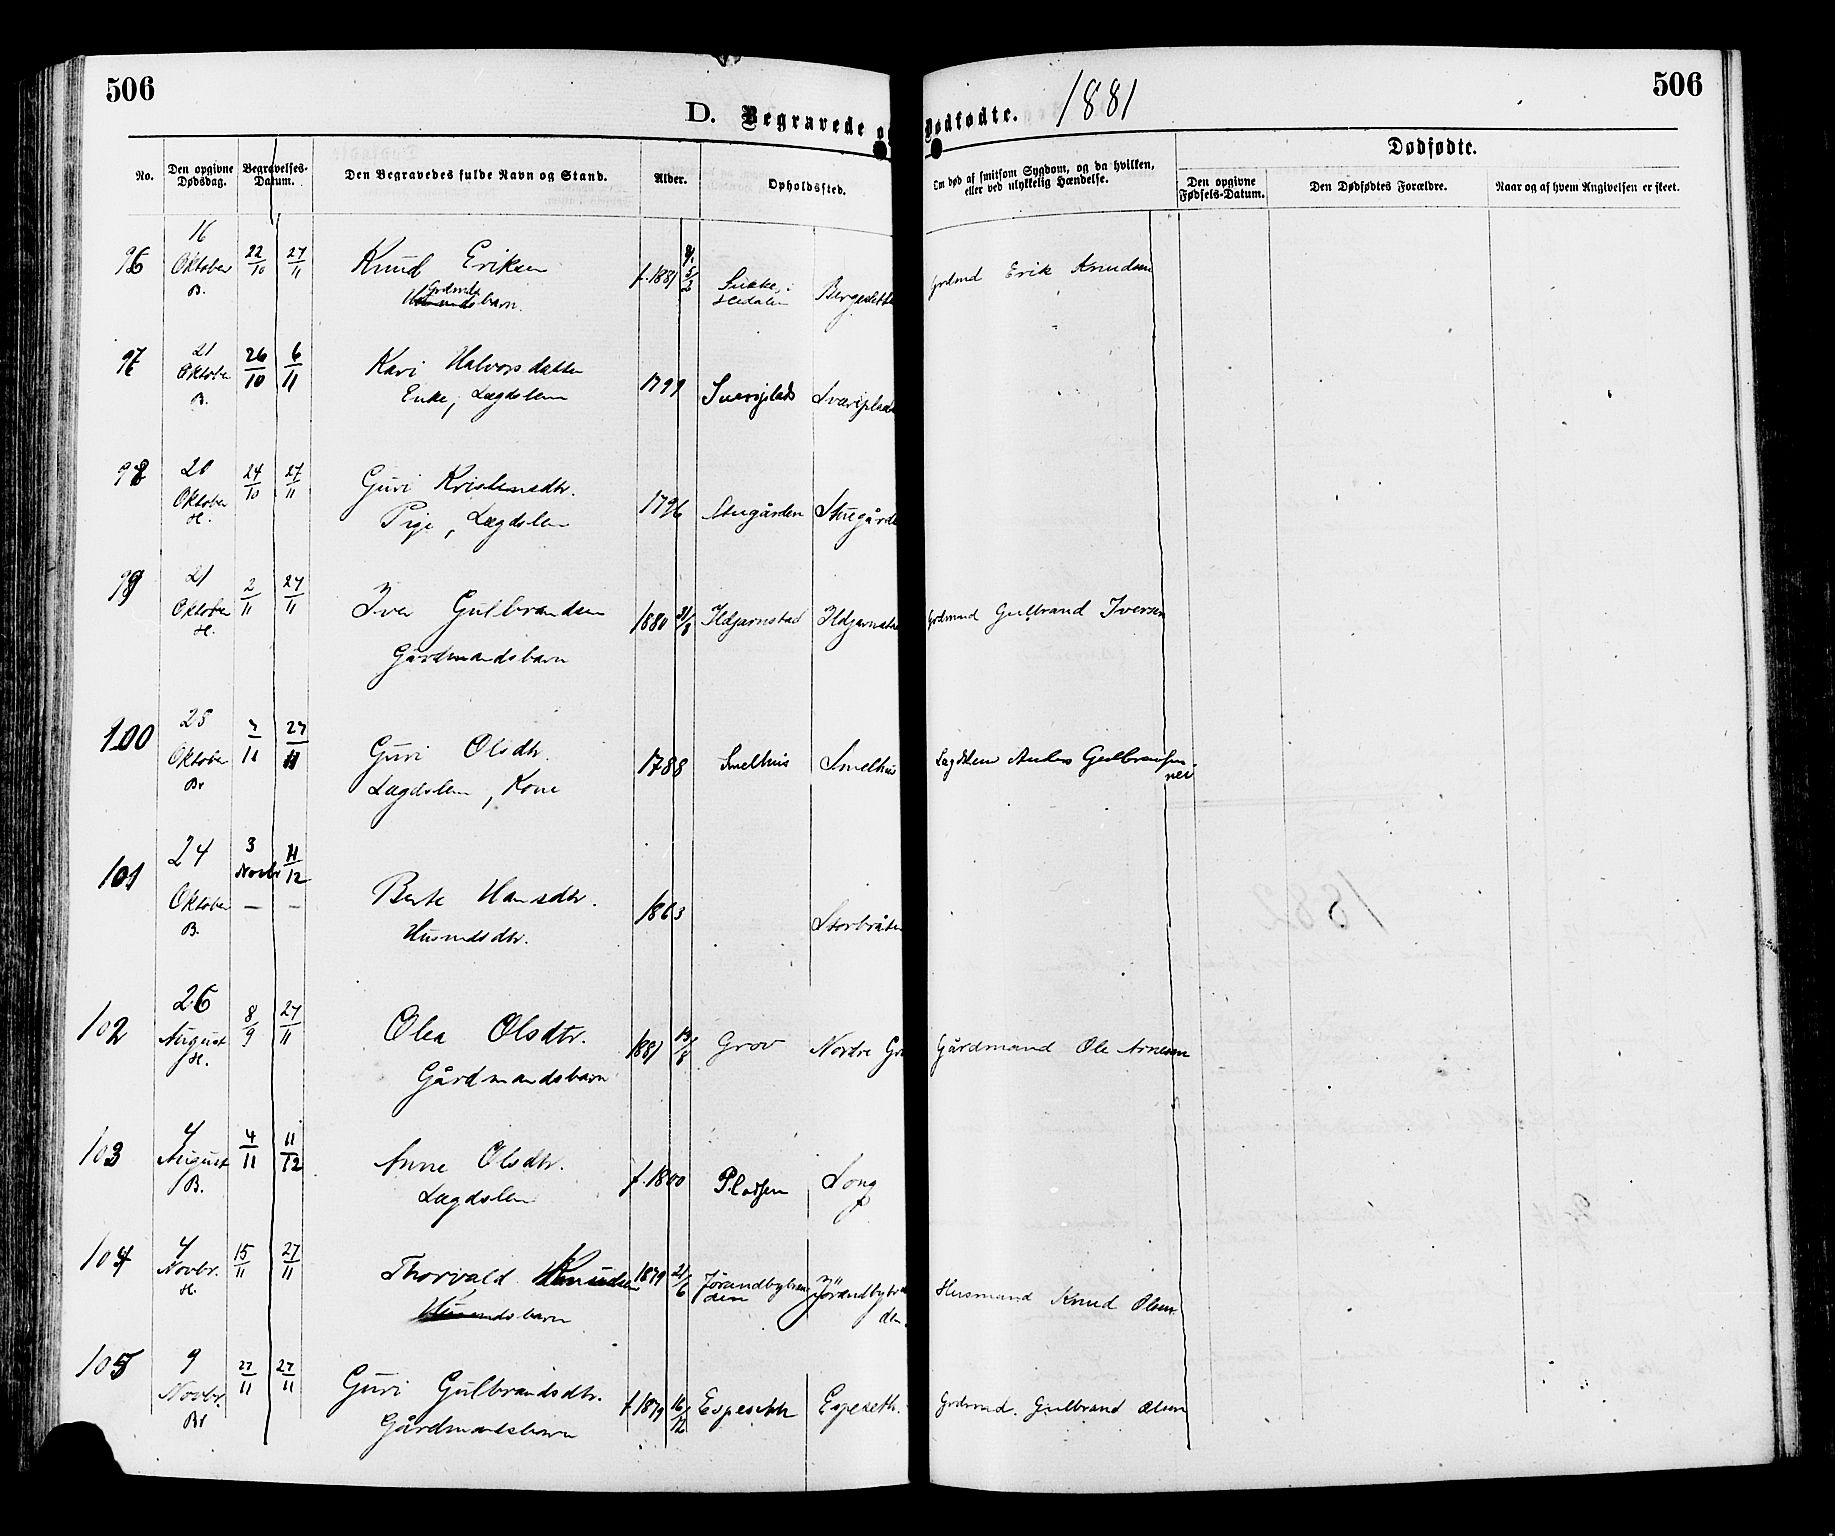 506
D. Begravede og Dødfødte. 1881
506
No.
Den opgivne Dødsdag.
Begravelses-Datum.
Den Begravedes fulde Navn og Stand.
Alder.
Opholdssted.
Om død af smitsom Sygdom, og da hvilken, eller ved ulykkelig Hændelse.
Dødfødte.
Den opgivne Fødsels-Datum.
Den Dødfødtes Forældre.
Naar og af hvem Angivelsen er skeet.
96 16 Oktober B. 22/10 27/11 Knud Eriksen f. 1881 Hedalen Grdmd Erik Knudsen
Grdmds barn.
97 21 Oktober B. 26/10 6/11 Kari Halvorsdatter 1799
Enke, Lægdslem
98 20 Oktober H. 24/10 27/11 Guri Kristensdtr. 1796
Pige, Lægdslem
99 21 Oktober H. 2/11 27/11 Iver Gulbrandsen 1880 21/8 Ildjarnstad Ildjarnsta Grdmand Gulbrand Iversen
Gårdmandsbarn
100 25 Oktober Br 27/11 Guri Olsdtr. 1788 Smelhus Smelhus
Lægdslem, Kone
101 24 Oktober B. 3 Novbr 11/12 Berte Hansdtr. 1863 Storbråten
Husmdsdtr.
102 26 August H. 8/9 27/11 Olea Olsdtr. 1881 Grov Nordre Gro Gårdmand Ole Arnesen
Gårdmandsbarn
103 4 August B. 4/11 11/12 Anne Olsdtr. f. 1800 Pladsen
Lægdslem
104 4 Novbr. H. 15/11 27/11 Thorvald Knudsen 1879 21/6 Husmand Knud Olsen
barn
105 9 Novbr. Br 27/11 27/11 Guri Gulbrandsdtr. f. 1879 16/12 Espeseth Espeseth. Grdmnd. Gulbrand Olsen
Gårdmandsbarn